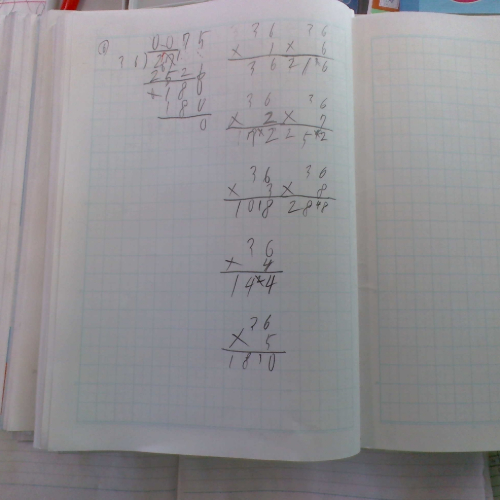 0075
36
252
180
180
0
36 36
× 1 × 6
36 216
36 36
× 2 × 7
72 252
36 36
× 3 × 8
108 288
36
× 4
144
36
× 5
180